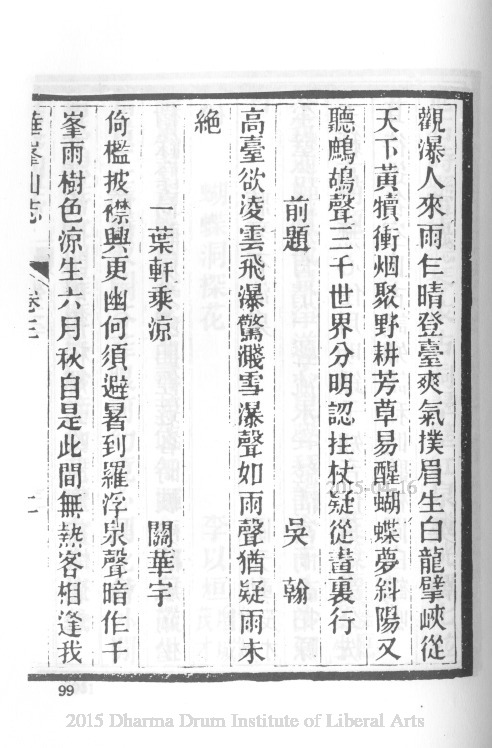 觀瀑人來雨乍晴登臺爽氣撲眉生白龍擘峽從
天下黃犢衝烟聚野耕芳草易醒蝴蝶夢斜陽又
聽鷓鴣聲三千世界分明認拄杖疑從畫裏行
前題 吳翰
高臺欲淩雲飛瀑驚濺雪瀑聲如雨聲猶疑雨未
絶
一葉軒乘涼 關華宇
倚檻披襟興更幽何須避暑到羅浮泉聲暗作千
峯雨樹色凉生六月秋自是此間無熱客相逢我
華峯山志 卷三 二
99
2015-06-16
2015 Dharma Drum Institute of Liberal Arts